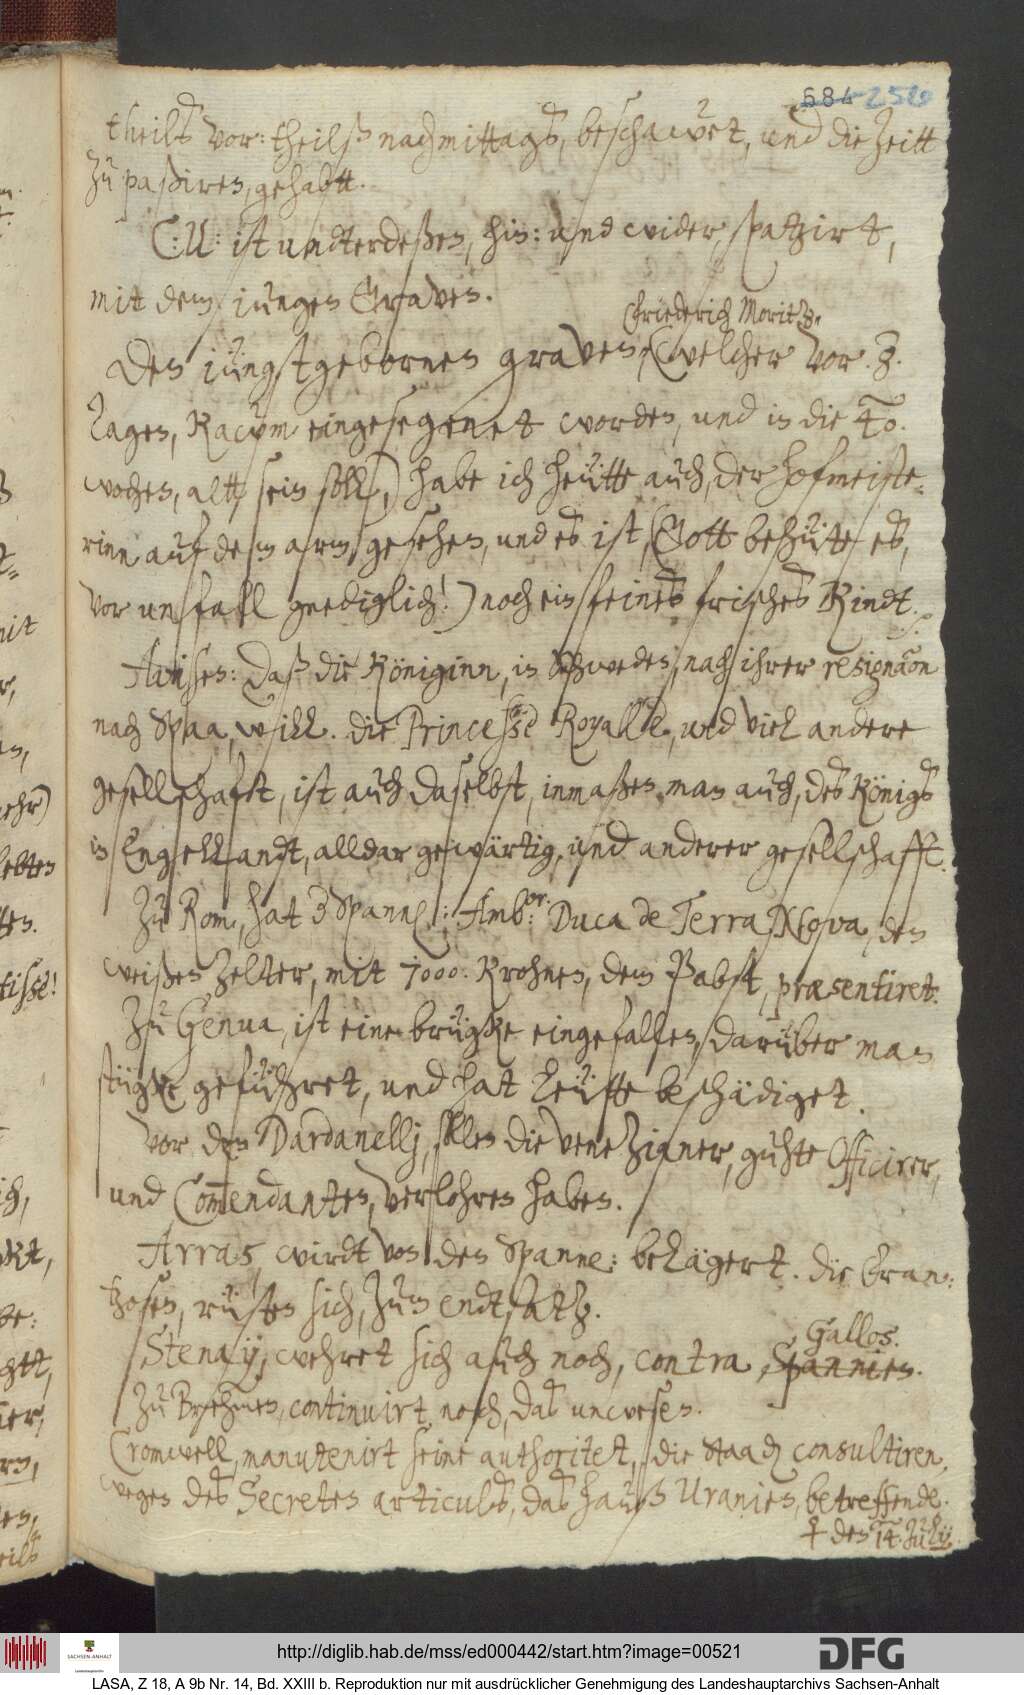 684 256
theilß vor: theilß nachmittagß, beschawet, und die zeitt
zu paßiren, gehabtt.
C: M: ist undterdeßen, hin: und wider, spatzirt,
mit dem jungen Graven.
Friederich Moritz.
Den jüngstgebornen graven, (welcher vor 3.
Tagen, kaum eingesegenet worden, und in die
wochen, altt, sein soll,) habe ich heütte auch, der hofmeiste-
rinn auf dem arm, gesehen, und es ist, (Gott behüte es,
vor unfall gnediglich!) noch ein feines frisches Kindt.
Avisen: Daß die Königinn, in Schweden, nach ihrer resignaon
nach Spaa, will. die Princesse Royalle, und viel andere
gesellschafft, ist auch daselbst, inmaßen man auch, des Königs
in Engellandt, alldar gewärtig, und anderer gesellschafft.
Zu Rom, hat Spann: Ambor: Duca de Terra Nova, den
weißen Zelter, mit 7000. Krohnen, dem Pabst, præsentiret.
Zu Genua, ist eine brügke eingefallen, darüber man
stügke geführet, und hat leütte beschädiget.
Vor den Dardanellj, sollen die venezianer, guhte Officirer,
und Comendanten, verlohren haben.
Arras, wirdt von den Spanne: belägert. die Fran:
tzosen, rüsten sich, zum endtsatz.
Gallos.
Stenay, wehret sich auch noch, contra Spannies.
Zu Brehmen, continuirt, noch, das unwesen.
Cromwell, manutenirt seine authoritet, die Staaden consultiren,
wegen des Secreten articulß, das hauß Uranien, betreffende.
☿ den 14. Julij
http://diglib.hab.de/mss/ed000442/start.htm?image=00521
SACHSEN-ANHALT
Landeshauptarchiv
DFG
LASA, Z 18, A 9b Nr. 14, Bd. XXIII b. Reproduktion nur mit ausdrücklicher Genehmigung des Landeshauptarchivs Sachsen-Anhalt